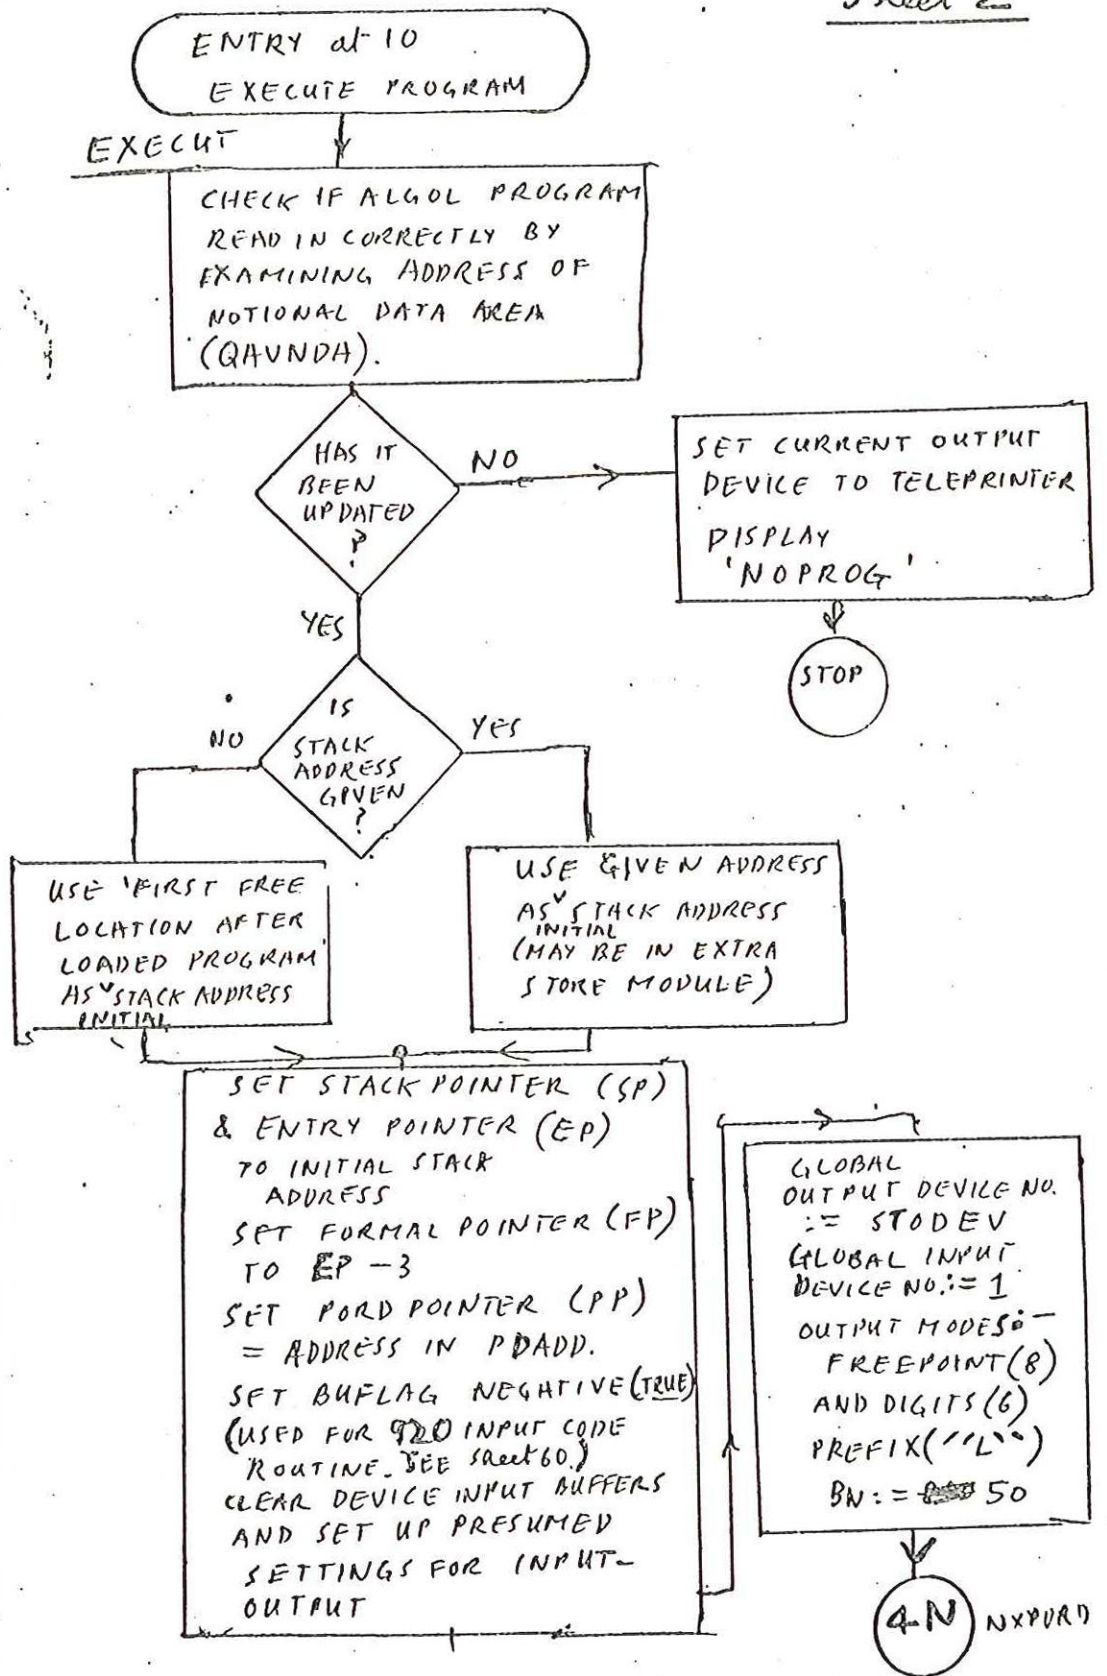 Sheet 2
ENTRY at 10
EXECUTE PROGRAM
EXECUT
CHECK IF ALGOL PROGRAM
READ IN CORRECTLY BY
EXAMINING ADDRESS OF
NOTIONAL DATA AREA
(QAVNDA).
HAS IT
BEEN
UPDATED
?
NO
SET CURRENT OUTPUT
DEVICE TO TELEPRINTER
DISPLAY
'NOPROG'
STOP
YES
IS
STACK
ADDRESS
GIVEN
?
NO
YES
USE 'FIRST FREE
LOCATION AFTER
LOADED PROGRAM'
AS STACK ADDRESS
INITIAL
USE GIVEN ADDRESS
AS STACK ADDRESS
INITIAL
(MAY BE IN EXTRA
STORE MODULE)
SET STACK POINTER (SP)
& ENTRY POINTER (EP)
TO INITIAL STACK
ADDRESS
SET FORMAL POINTER (FP)
TO EP -3
SET PORD POINTER (PP)
= ADDRESS IN PDADD.
SET BUFLAG NEGATIVE (TRUE)
(USED FOR 920 INPUT CODE
ROUTINE. SEE Sheet 60.)
CLEAR DEVICE INPUT BUFFERS
AND SET UP PRESUMED
SETTINGS FOR INPUT-
OUTPUT
GLOBAL
OUTPUT DEVICE NO.
:= STODEV
GLOBAL INPUT
DEVICE NO.:= 1
OUTPUT MODES:-
FREEPOINT(8)
AND DIGITS(6)
PREFIX(''L'')
BN := 50
4-N
NXPORD